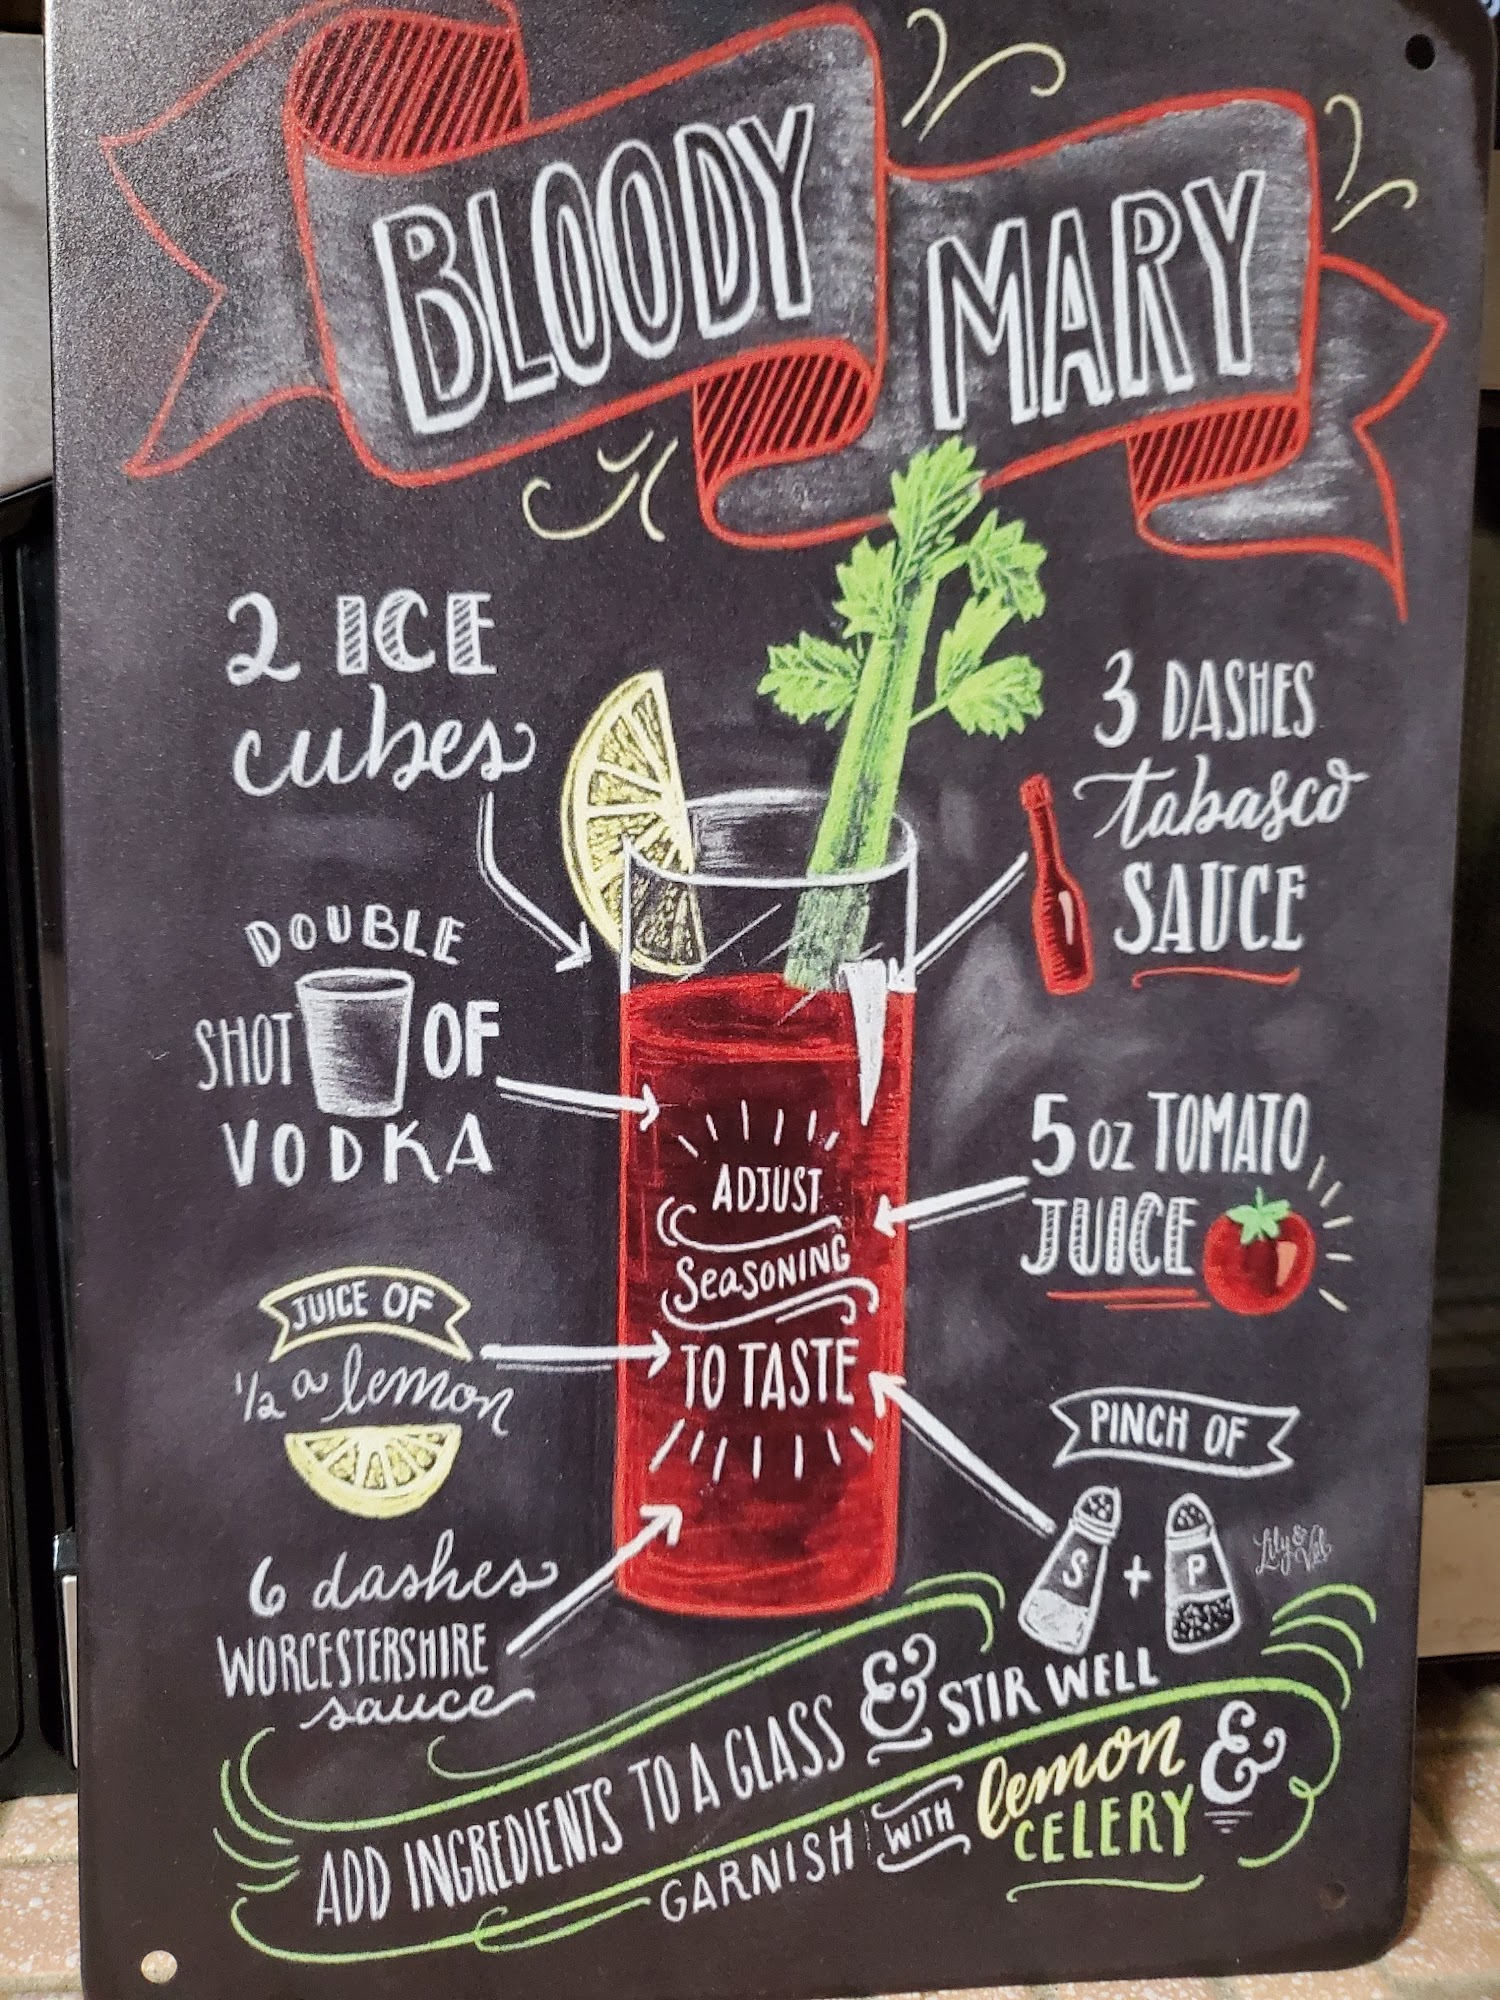 BLOODY
MARY
2 ICE
cubes
3 DASHES
tabasco
SAUCE
DOUBLE
SHOT OF
VODKA
5 oz TOMATO
JUICE
ADJUST
SEASONING
TO TASTE
JUICE OF
1/2 a lemon
PINCH OF
S + P
Lily & Val
6 dashes
WORCESTERSHIRE
sauce
ADD INGREDIENTS TO A GLASS & STIR WELL
GARNISH WITH lemon &
CELERY